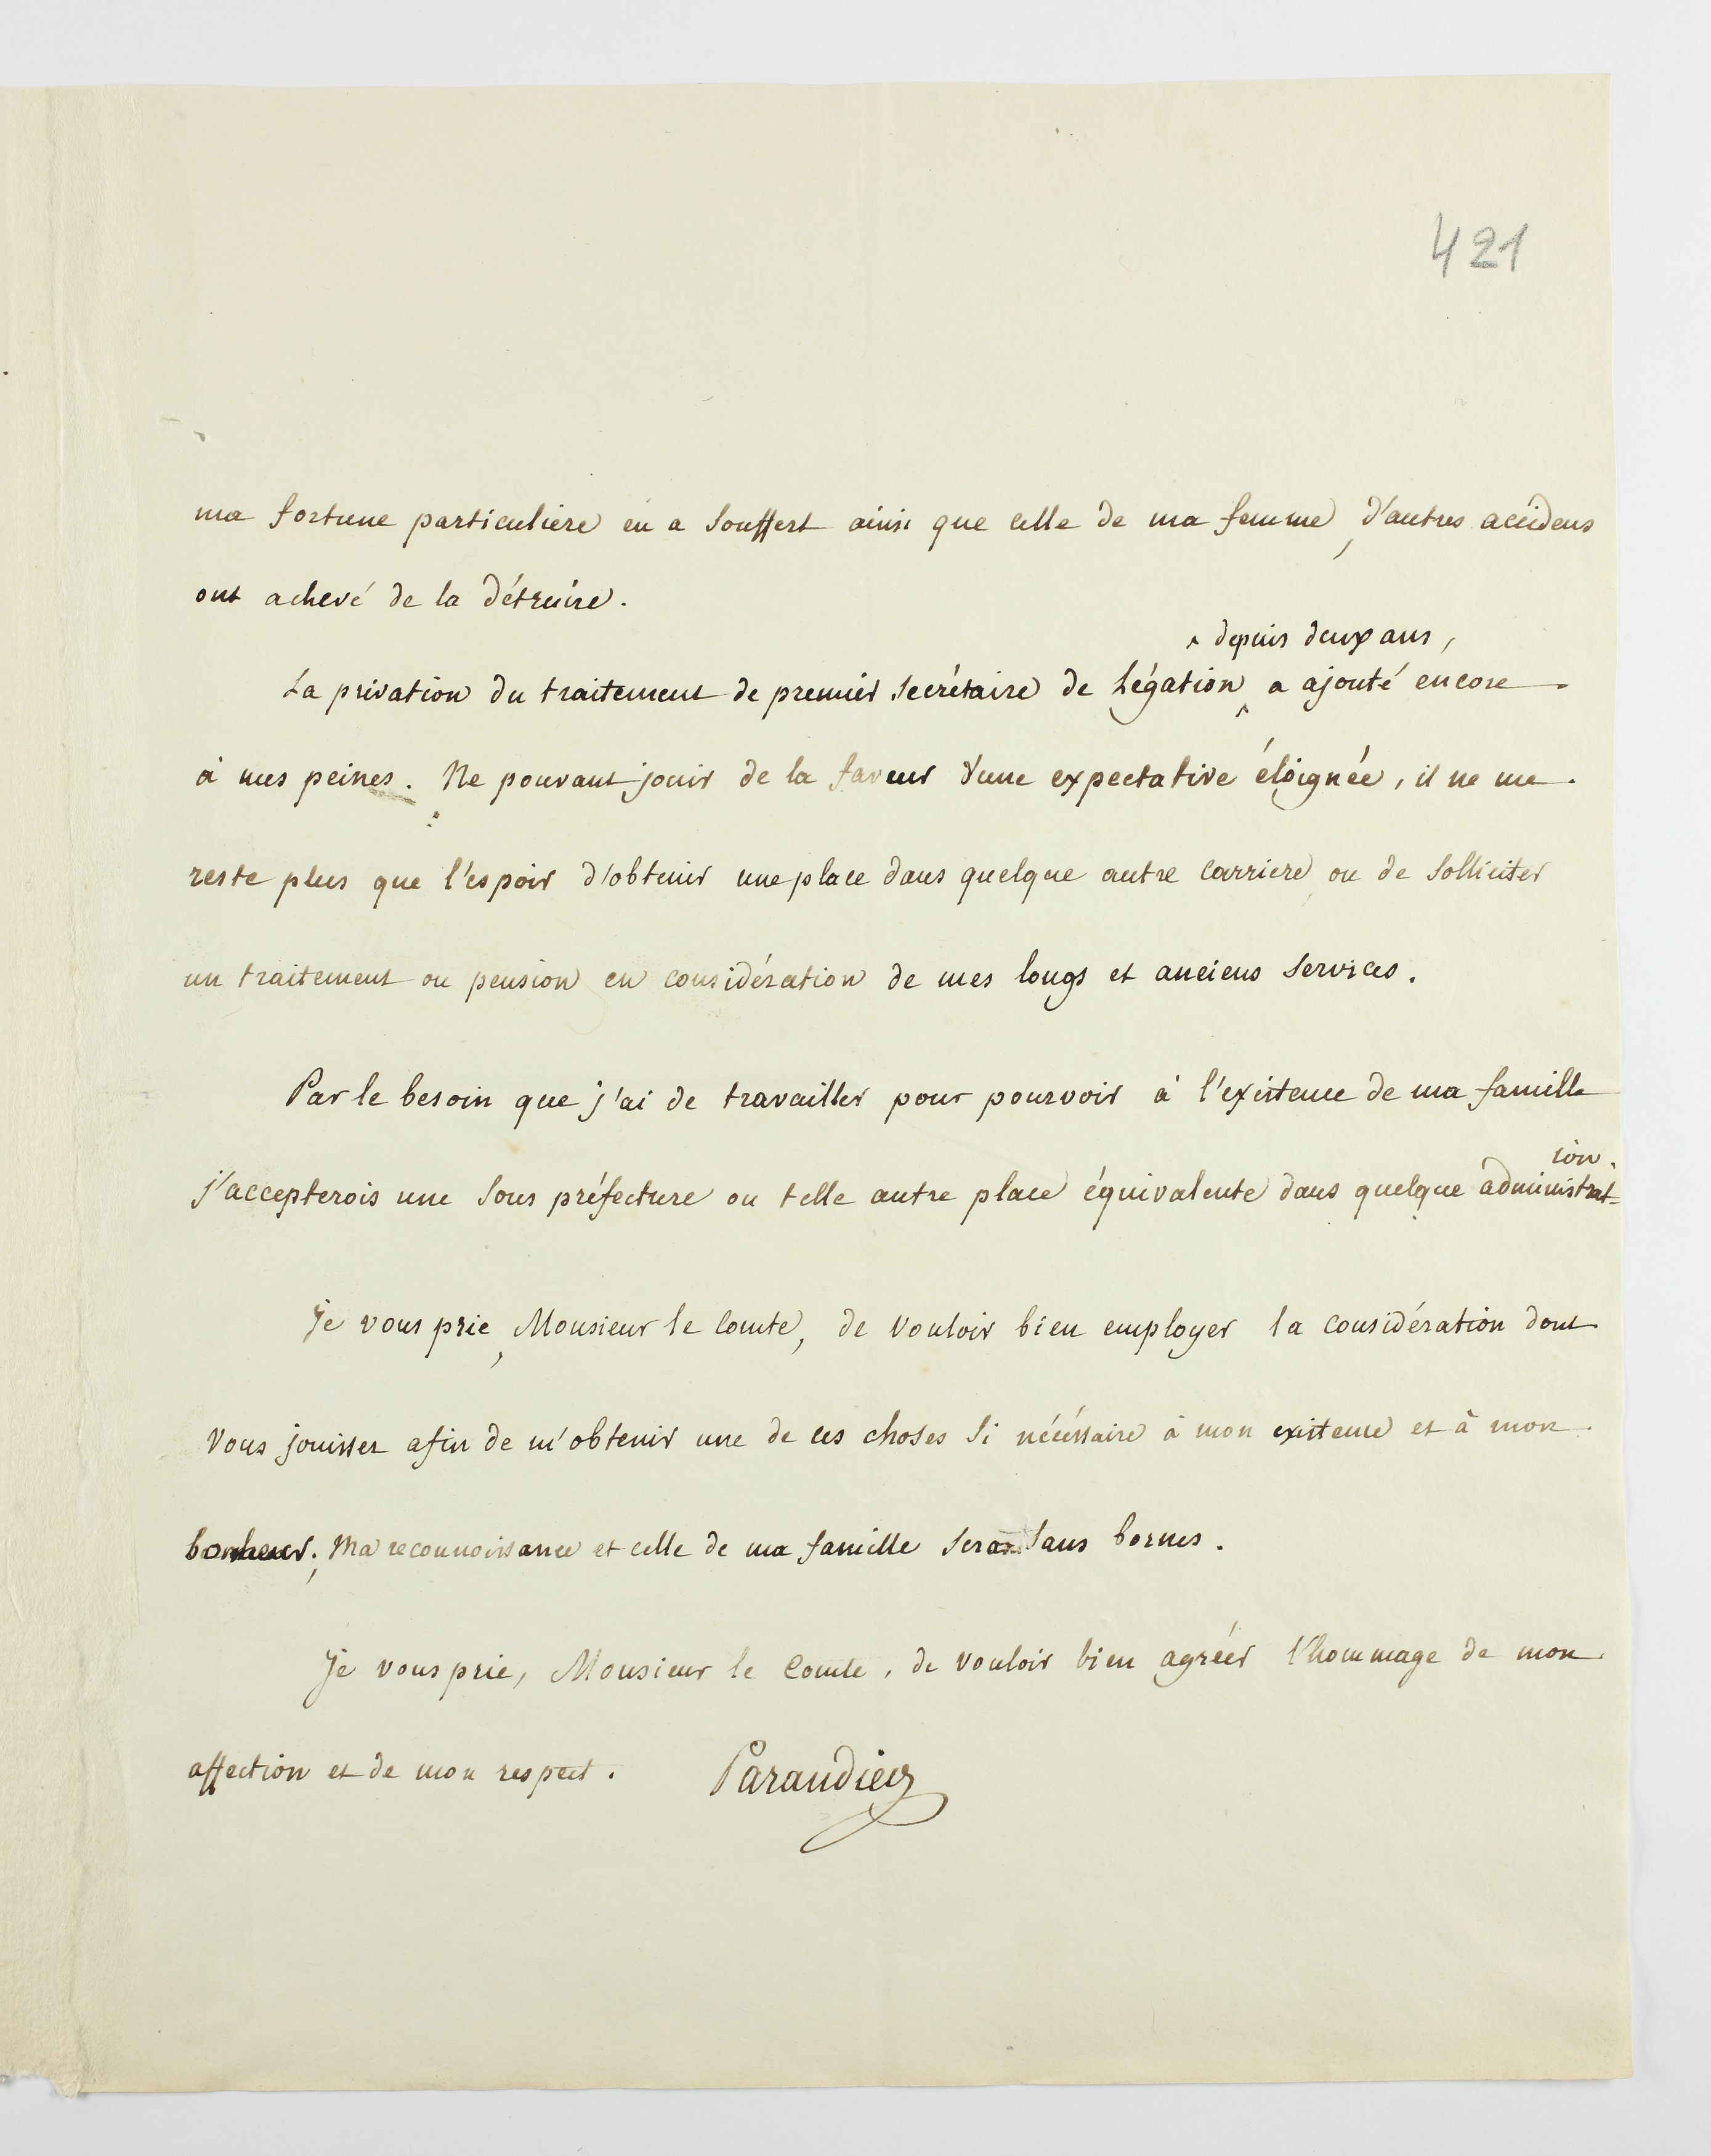 421
ma fortune particuliere en a souffert ainsi que celle de ma femme, d'autres accidens
ont achevé de la détruire.
^ depuis deux ans,
La privation du traitement de premier secrétaire de Légation ^ a ajouté encore
à mes peines. Ne pouvant jouir de la faveur d'une expectative éloignée, il ne me
reste plus que l'espoir d'obtenir une place dans quelque autre carriere ou de solliciter
un traitement ou pension en considération de mes longs et anciens services.
Par le besoin que j'ai de travailler pour pourvoir à l'existence de ma famille
j'accepterois une sous préfecture ou telle autre place équivalente dans quelque administrat=
ion.
Je vous prie, Monsieur le Comte, de vouloir bien employer la considération dont
vous jouissez afin de m'obtenir une de ces choses si nécéssaire à mon existence et à mon
bonheur; Ma reconnoissance et celle de ma famille sera sans bornes.
Je vous prie, Monsieur le Comte, de vouloir bien agréer l'hommage de mon
affection et de mon respect. Parandier